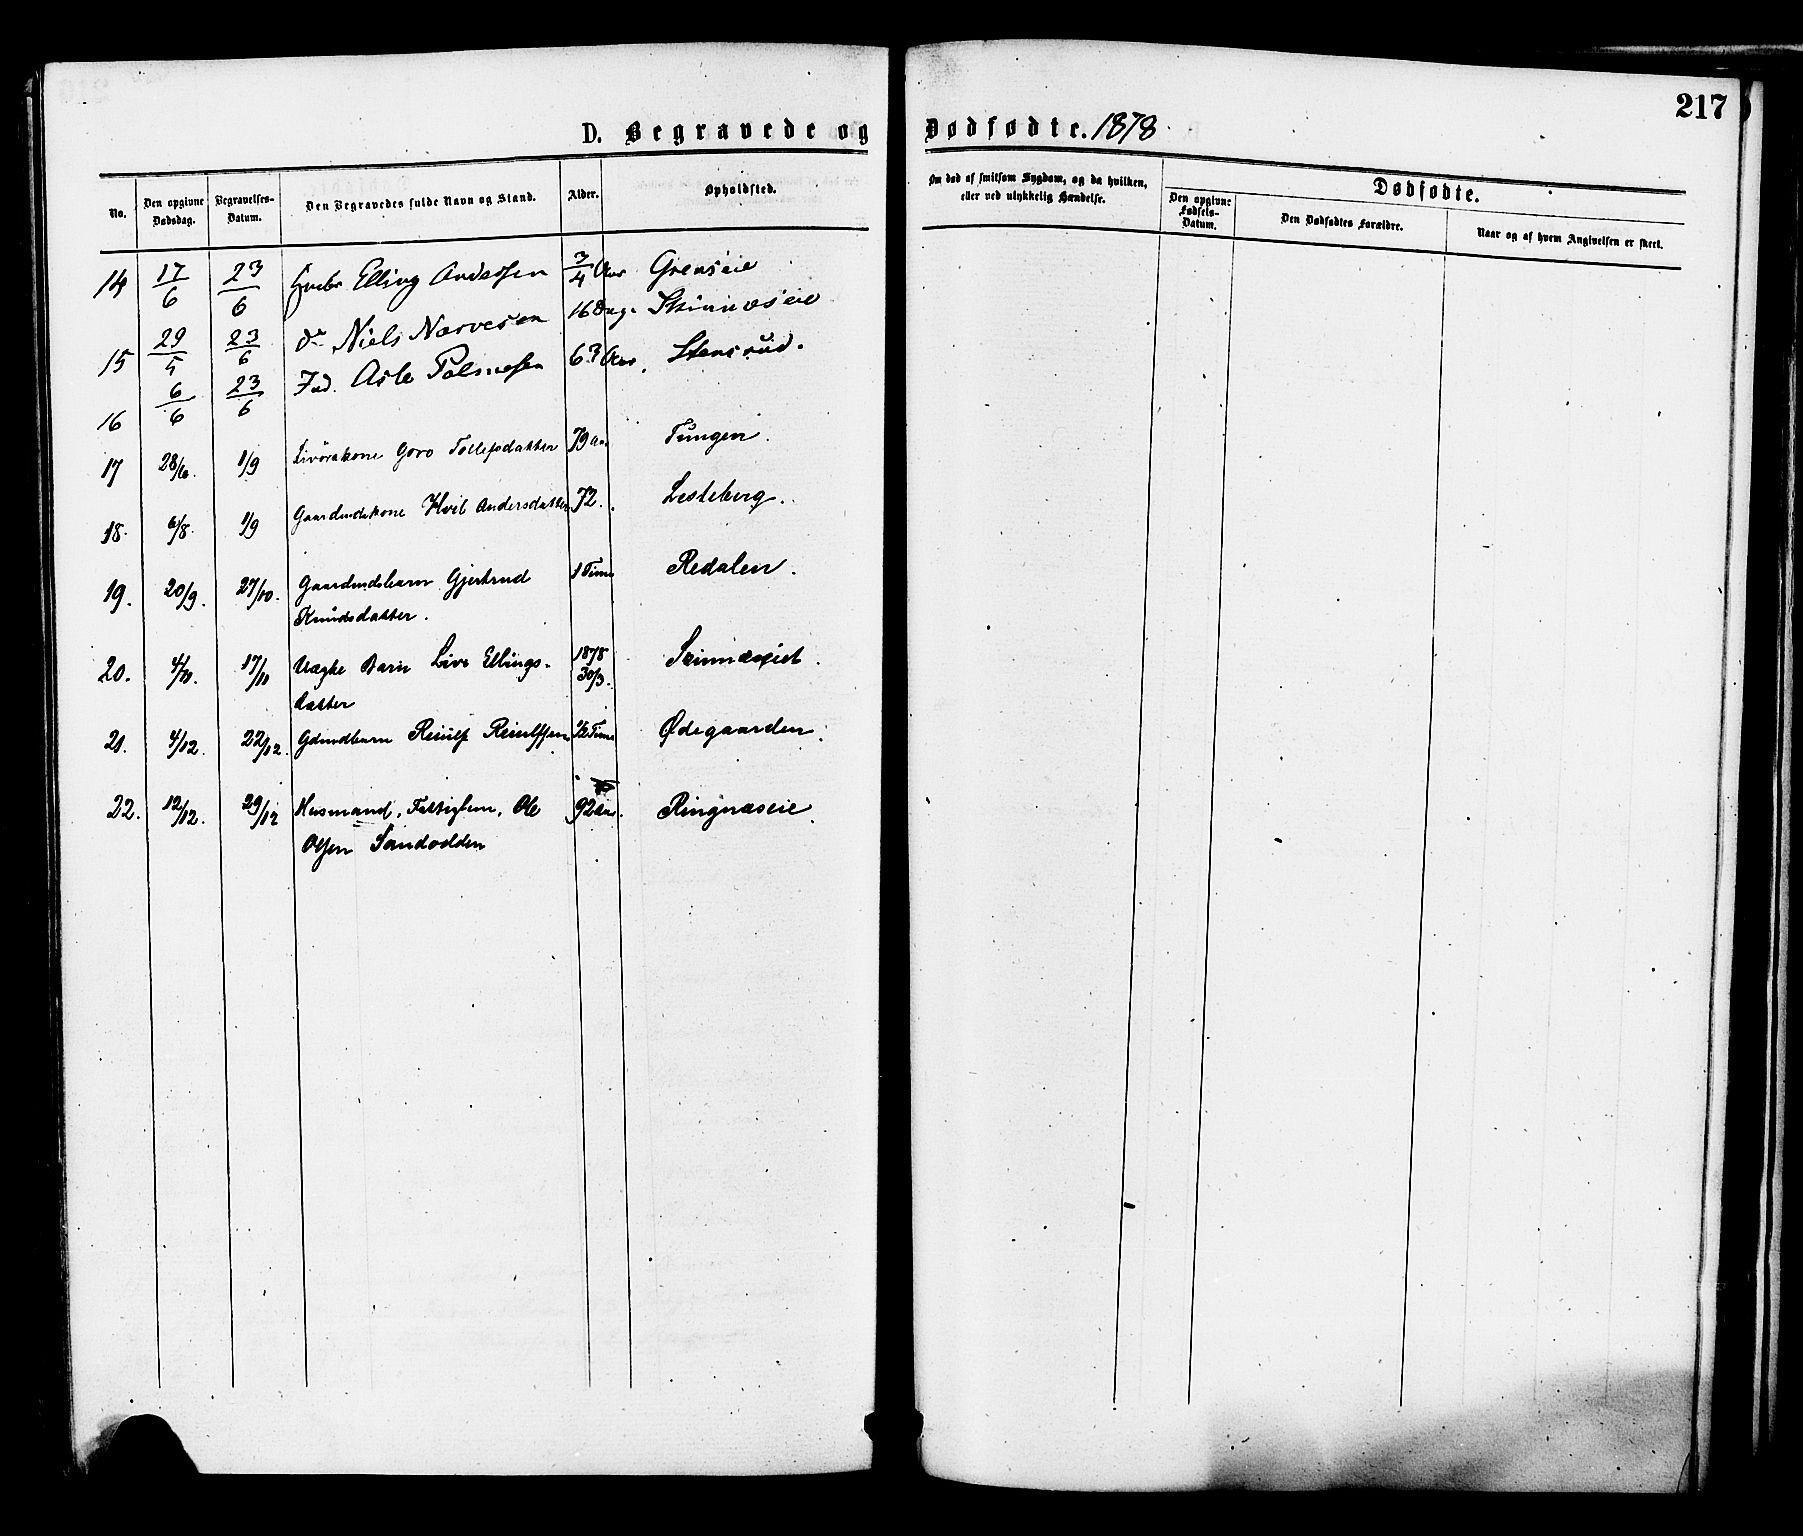 217
D. Begravede og Dødfødte. 1878
No. Den opgivne Dødsdag. Begravelses-Datum. Den Begravedes fulde Navn og Stand. Alder. Opholdsted. Om død af smitsom Sygdom, og da hvilken, eller ved ulykkelig Hændelse. Dødfødte.
Den opgivne Fødsels-Datum. Den Dødfødtes Forældre. Naar og af hvem Angivelsen er skeet.
14 17/6 23/6 Elling Andersen 3/4 Aar Grenseie
15 29/5 23/6 do Niels Narvesen 16 Dag. Skinnæseie
16 6/6 23/6 Ind. Asle 63 Aar. Stensrud.
17 28/6. 1/9 Livørekone Goro Tollefsdatter 79 aar Tungen.
18. 6/8. 1/9 Gaardmdskone Hvil Andersdatter 72. Lesteberg.
19. 20/9. 27/10. Gaardmdsbarn Gjertrud 1 Time Redalen.
Knudsdatter.
20. 17/11 Uægte Barn Live Ellings- 1878 30/3. Skinnæseiet.
datter
21. 4/12. 22/12. Gdmdbarn 1/2 Time Ødegaarden.
22. 12/12. 29/12 Husmand, Fattiglem, Ole 92 Aar. Ringnæseie.
Olsen Sandodden